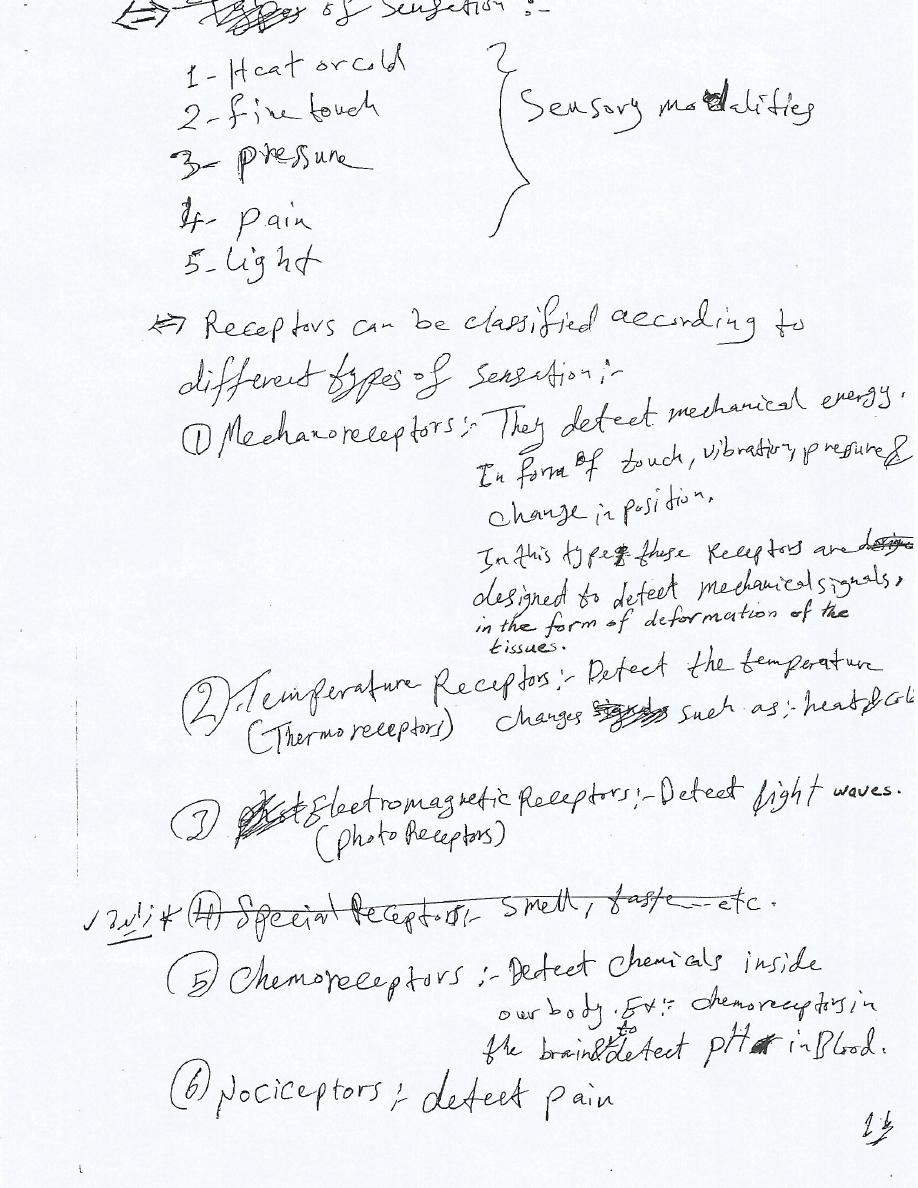 ⇔ Types of Sensation :-
1- Heat or cold
2- fine touch
3- pressure
4- pain
5- light
Sensory modalities
⇔ Receptors can be classified according to
different types of sensation :-
① Mechanoreceptors :- They detect mechanical energy.
In form of touch, vibration, pressure &
change in position.
In this type, these receptors are
designed to detect mechanical signals,
in the form of deformation of the
tissues.
② Temperature Receptors :- Detect the temperature
(Thermoreceptors) changes such as :- heat & cold
③ Electromagnetic Receptors :- Detect light waves.
(photo Receptors)
④ Special Receptors :- Smell, taste --- etc.
⑤ Chemoreceptors :- Detect chemicals inside
our body. Ex :- chemoreceptors in
the brain to detect pH in Blood.
⑥ Nociceptors :- detect pain